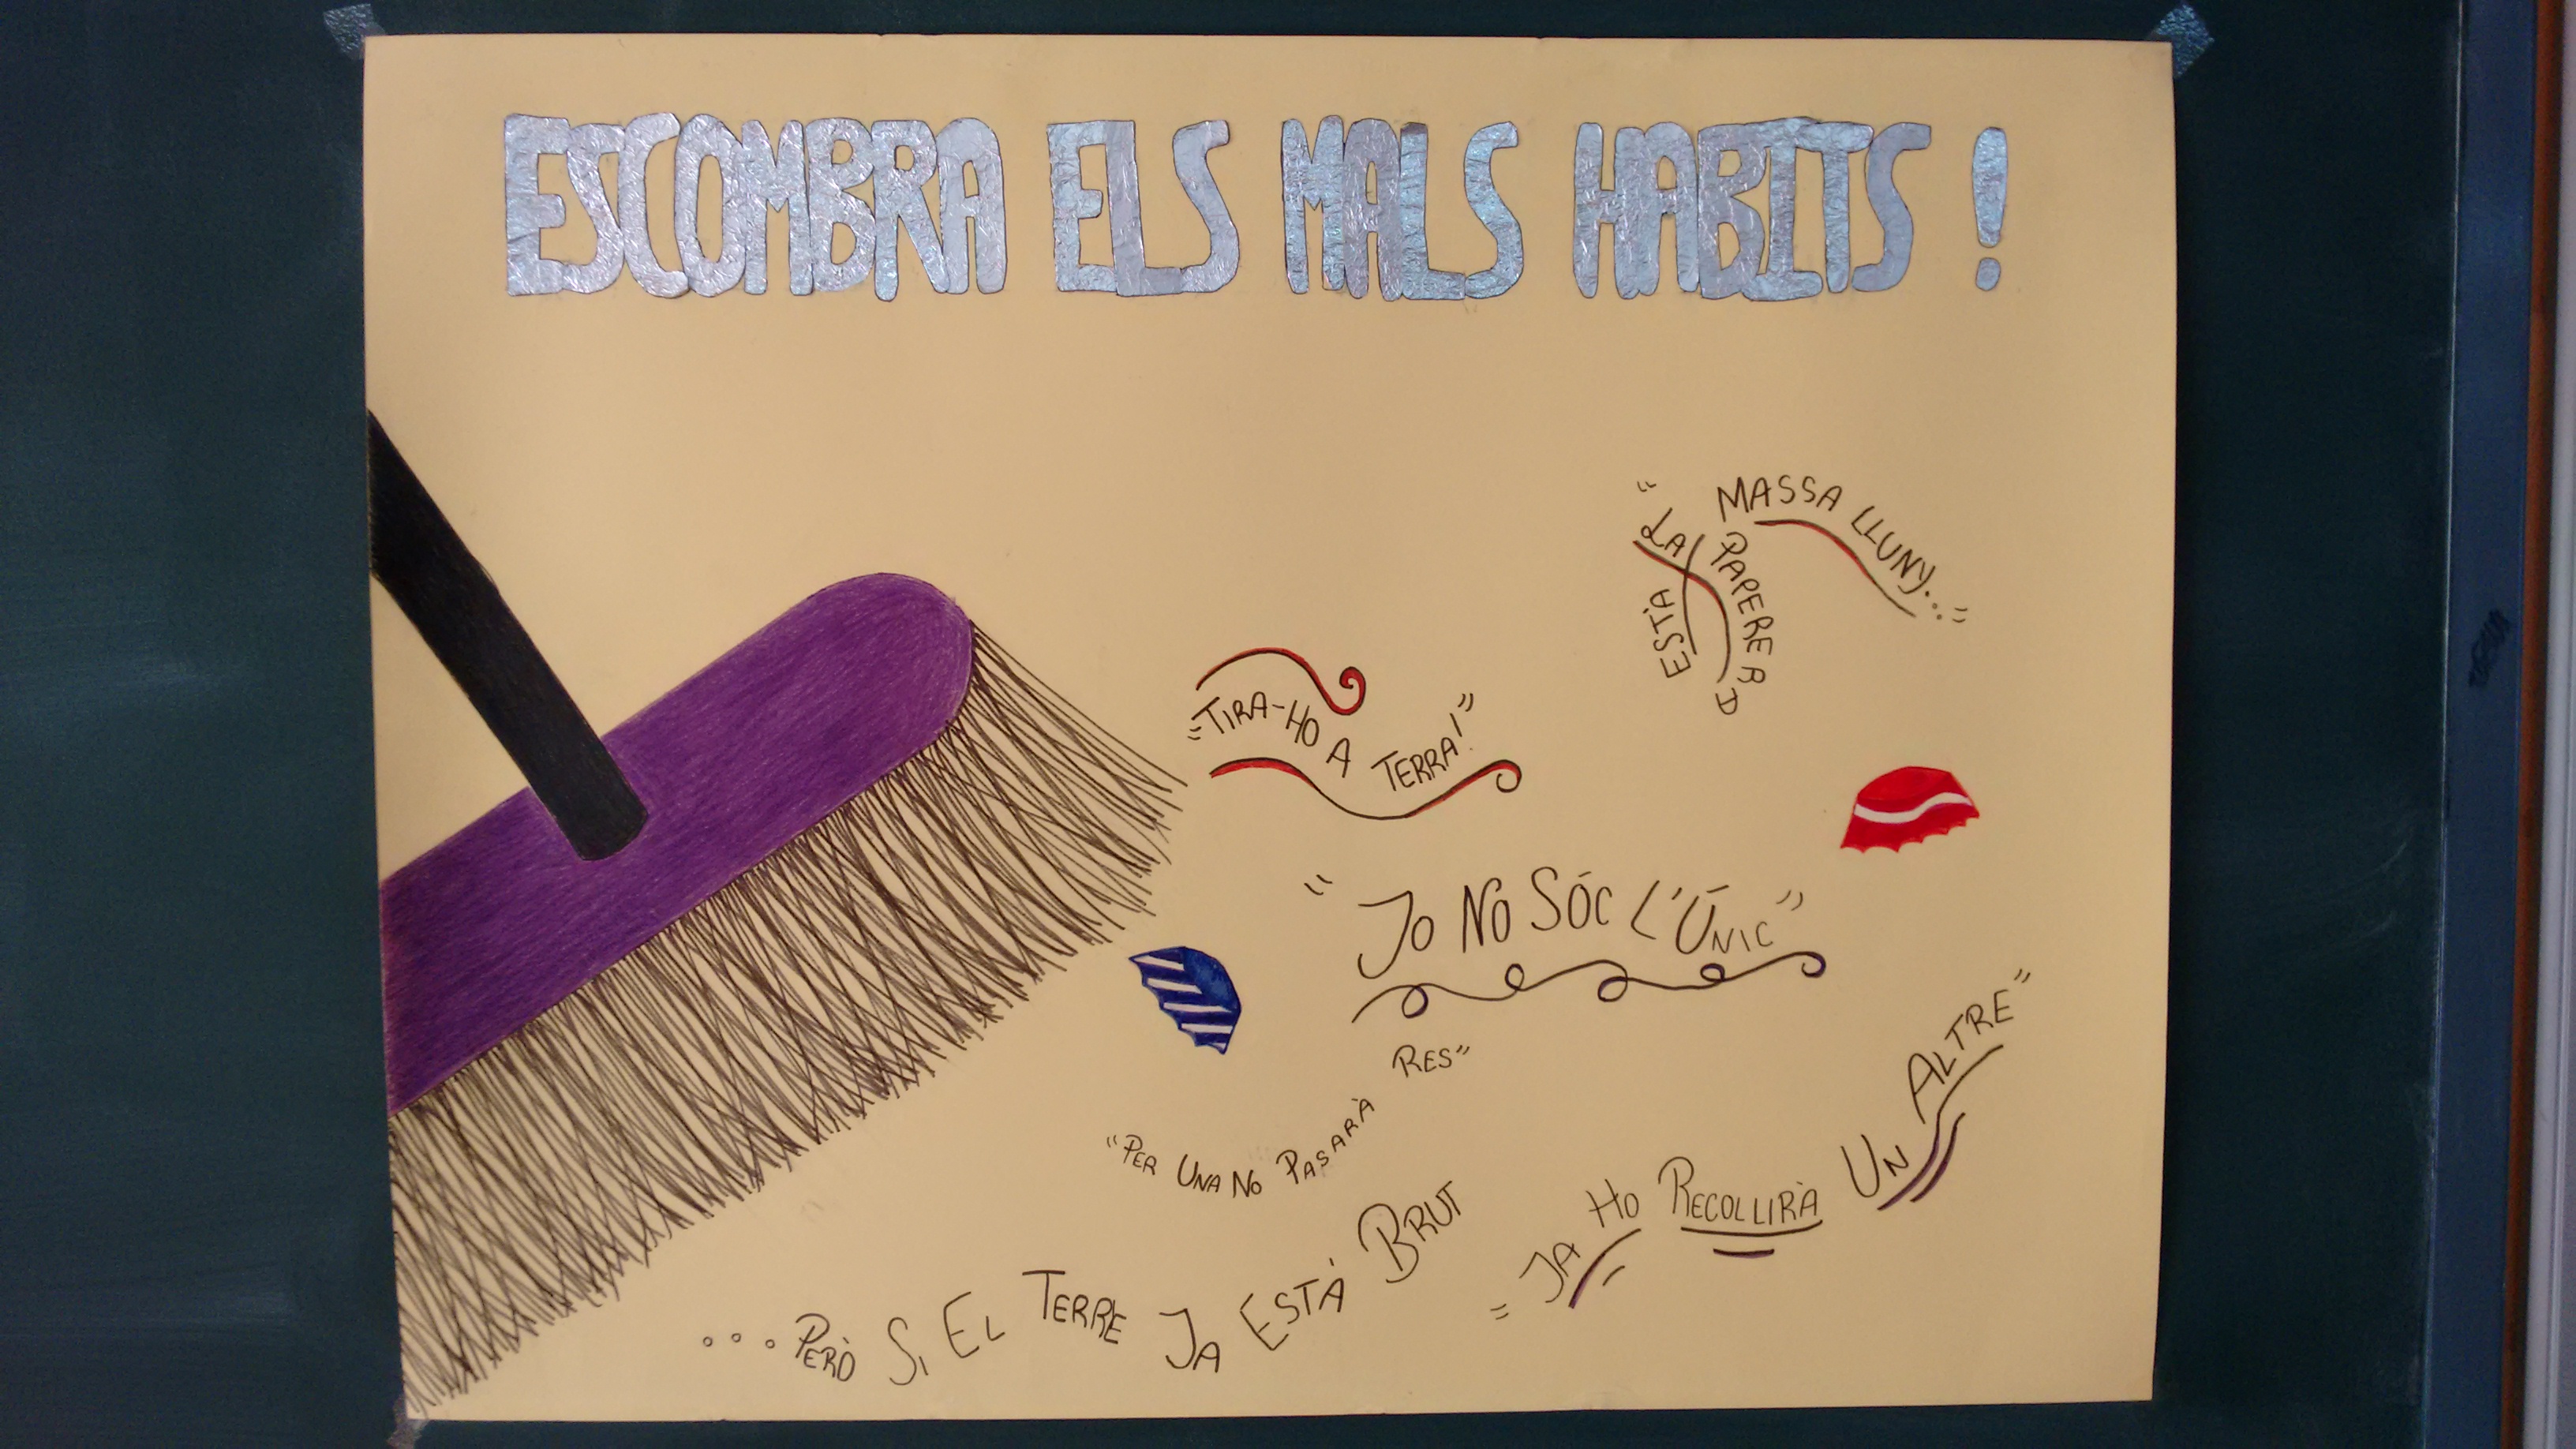 ESCOMBRA ELS MALS HABITS !
"LA PAPERERA
ESTÀ
MASSA LLUNY..."
"TIRA-HO A TERRA!"
"JO NO SÓC L'ÚNIC"
"PER UNA NO PASARÀ RES"
"JA HO RECOLLIRÀ UN ALTRE"
...PERÒ SI EL TERRE JA ESTÁ BRUT